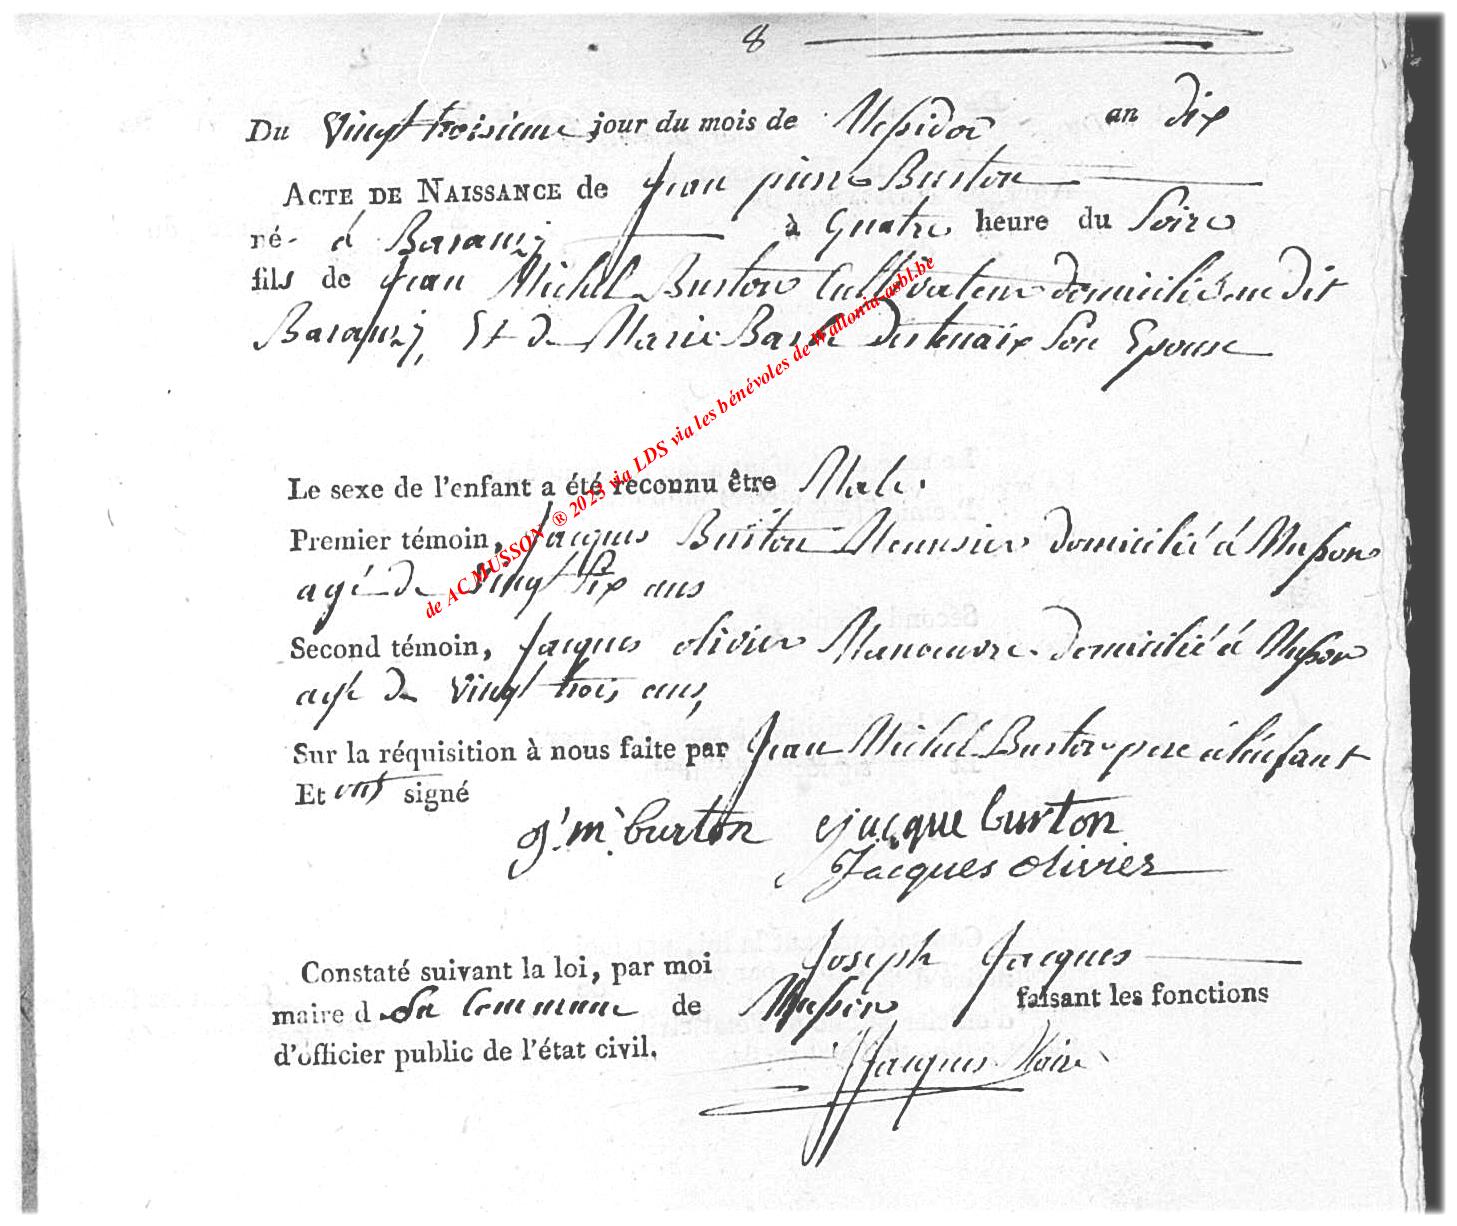 8
Du Vingt troisieme jour du mois de Messidor an dix
ACTE DE NAISSANCE de Jean pierre Burton
né à Baranzy à Quatre heure du Soire
fils de Jean Michel Burton Cultivateur domicilié au dit
Baranzy, Et de Marie Barbe Son Epouse
Le sexe de l'enfant a été reconnu être Male.
Premier témoin, Jacques Burton Meunsier domicilié à Musson
agé de Vingt Six ans
Second témoin, Jacques olivier Manoeuvre domicilié à Musson
agé de Vingt trois ans,
Sur la réquisition à nous faite par Jean Michel Burton pere à l'enfant
Et ont signé
j. m. burton jacque burton
Jacques olivier
Constaté suivant la loi, par moi Joseph Jacques
maire de la Commune de Musson faisant les fonctions
d'officier public de l'état civil.
Jacques Maire
de AC MUSSON ® 2023 via LDS via les bénévoles de Wallonia-asbl.be